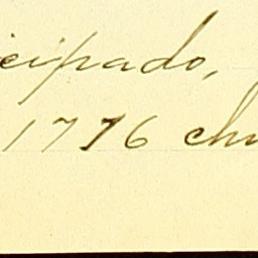 cipado,
1776 chu